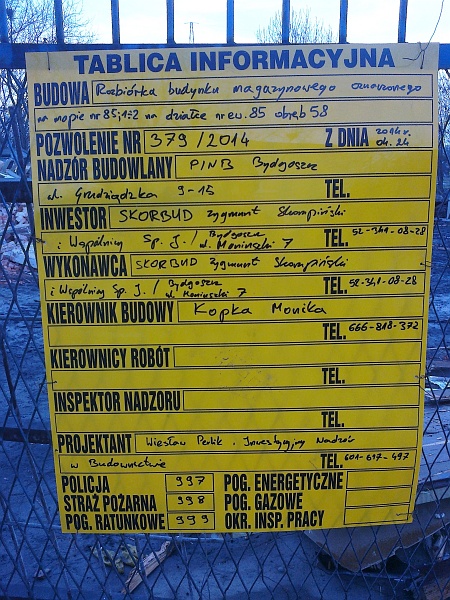 TABLICA INFORMACYJNA
BUDOWA Rozbiórka budynku magazynowego oznaczonego
na mapie nr 85;1÷2 na działce nr ew. 85 obręb 58
POZWOLENIE NR 379/2014 Z DNIA 2014 r. 04.24
NADZÓR BUDOWLANY PINB Bydgoszcz
ul. Grudziądzka 9-15 TEL.
INWESTOR SKORBUD Zygmunt Skompiński
i Wspólnicy Sp. J. / Bydgoszcz ul. Moniuszki 7 TEL. 52-341-08-28
WYKONAWCA SKORBUD Zygmunt Skompiński
i Wspólnicy Sp. J. / Bydgoszcz ul. Moniuszki 7 TEL. 52-341-08-28
KIEROWNIK BUDOWY Kopka Monika
TEL. 666-818-372
KIEROWNICY ROBÓT
TEL.
INSPEKTOR NADZORU
TEL.
PROJEKTANT Wiesław Inwestycyjny Nadzór
w Budownictwie TEL. 601-617-497
POLICJA 997 POG. ENERGETYCZNE
STRAŻ POŻARNA 998 POG. GAZOWE
POG. RATUNKOWE 999 OKR. INSP. PRACY